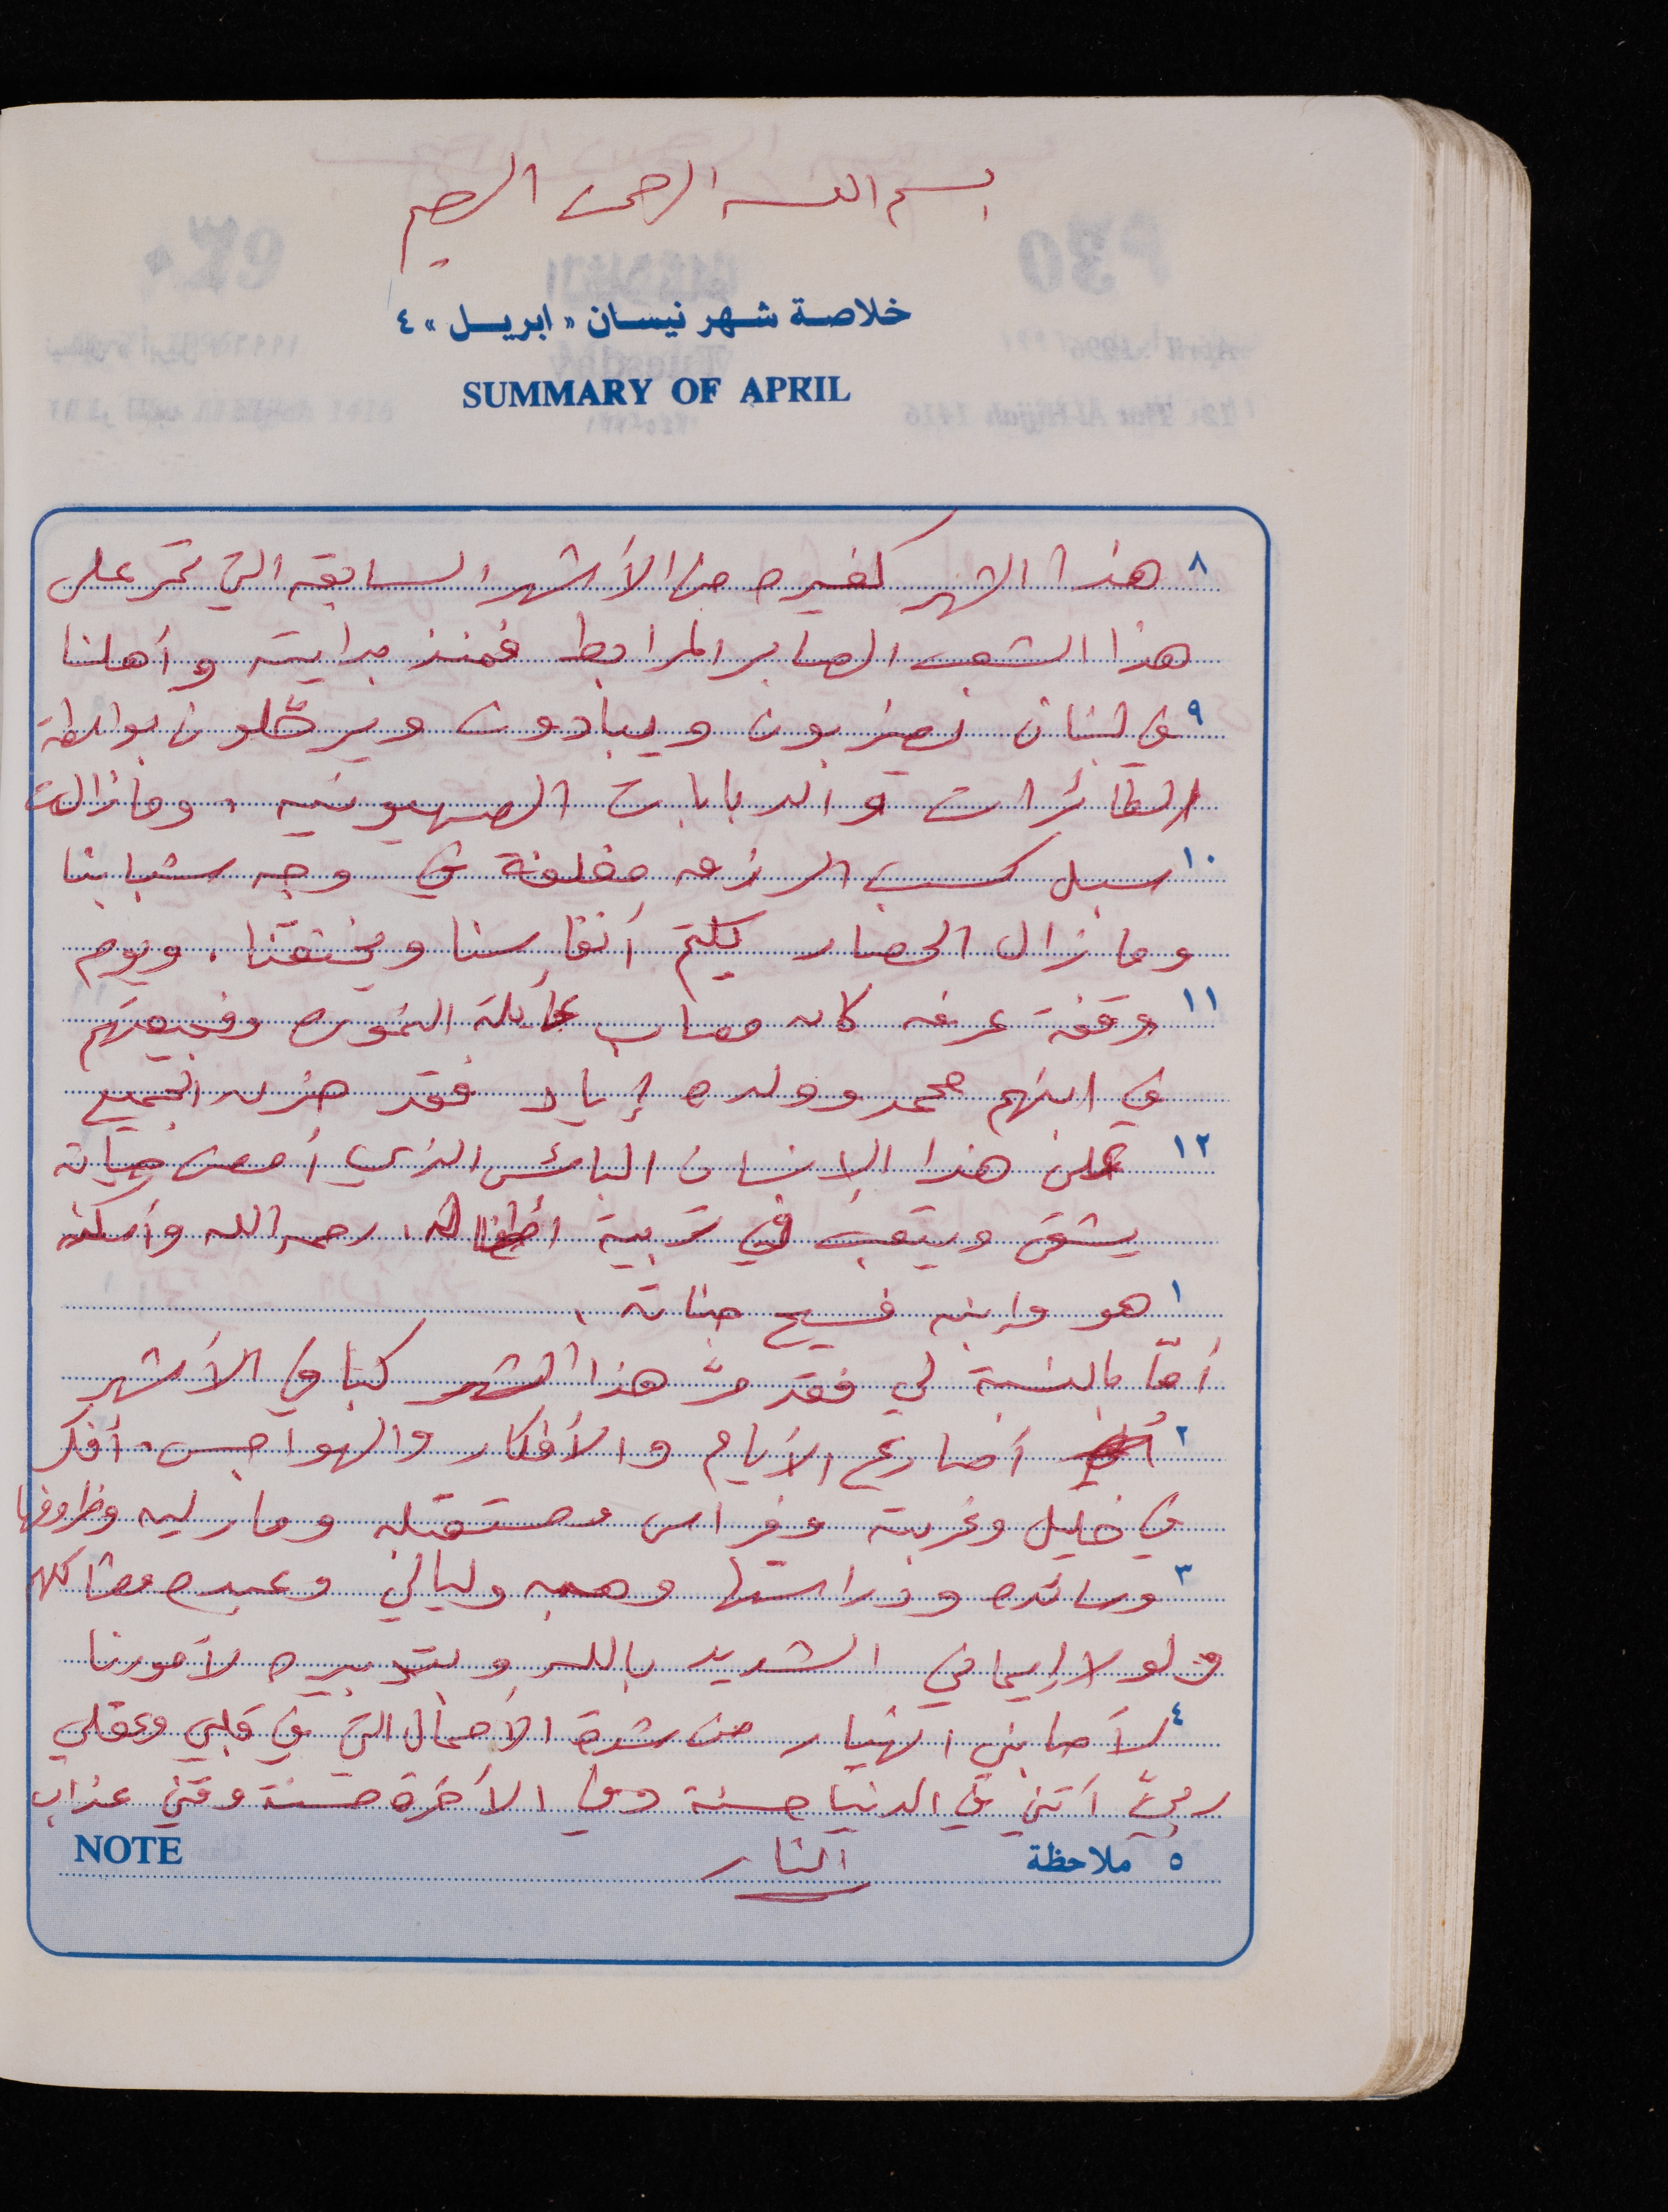 بسم الله الرحمن الرحيم
خلاصة شهر نيسان « ابريل » ٤
SUMMARY OF APRIL
٨ هذا الشهر كغيره من الأشهر السابقة التي تمر على
هذا الشعب الصابر المرابط فمنذ بدايته وأهلنا
٩ في لبنان يضربون ويبادون ويرحّلون بواسطة
الطائرات والدبابات الصهيونيه. وما زالت
١٠ سبل كسب الرزق مغلقة في وجه شبابنا
وما زال الحصار يكتم أنفاسنا ويخنقنا. ويوم
١١ وقفة عرفه كان مصاب عائلة وفجيعتهم
في ابنهم محمد وولده إياد فقد حزن الجميع
١٢ على هذا الإنسان البائس الذي أمضى حياته
يشقى ويتعب في تربية أطفاله. رحمه الله وأسكنه
١ هو وإبنه فسيح جناته.
أمّا بالنسبة لي فقد مرّ هذا الشهر كباقي الأشهر
٢ أصارع الأيام والأفكار والهواجس. أفكر
في خليل وغربته وفراس ومستقبله ومارليه وظروفها
٣ ورائده ودراستها وهبه وليالي وعبيده ومشاكلهم
ولولا إيماني الشديد بالله وبتدبيره لأمورنا
٤ لأصابني انهيار من شدة الأحمال التي في قلبي وعقلي
ربيّ أتني في الدنيا حسنة وفي الأخرة حسنة وقني عذاب
النار
٥ ملاحظة
NOTE